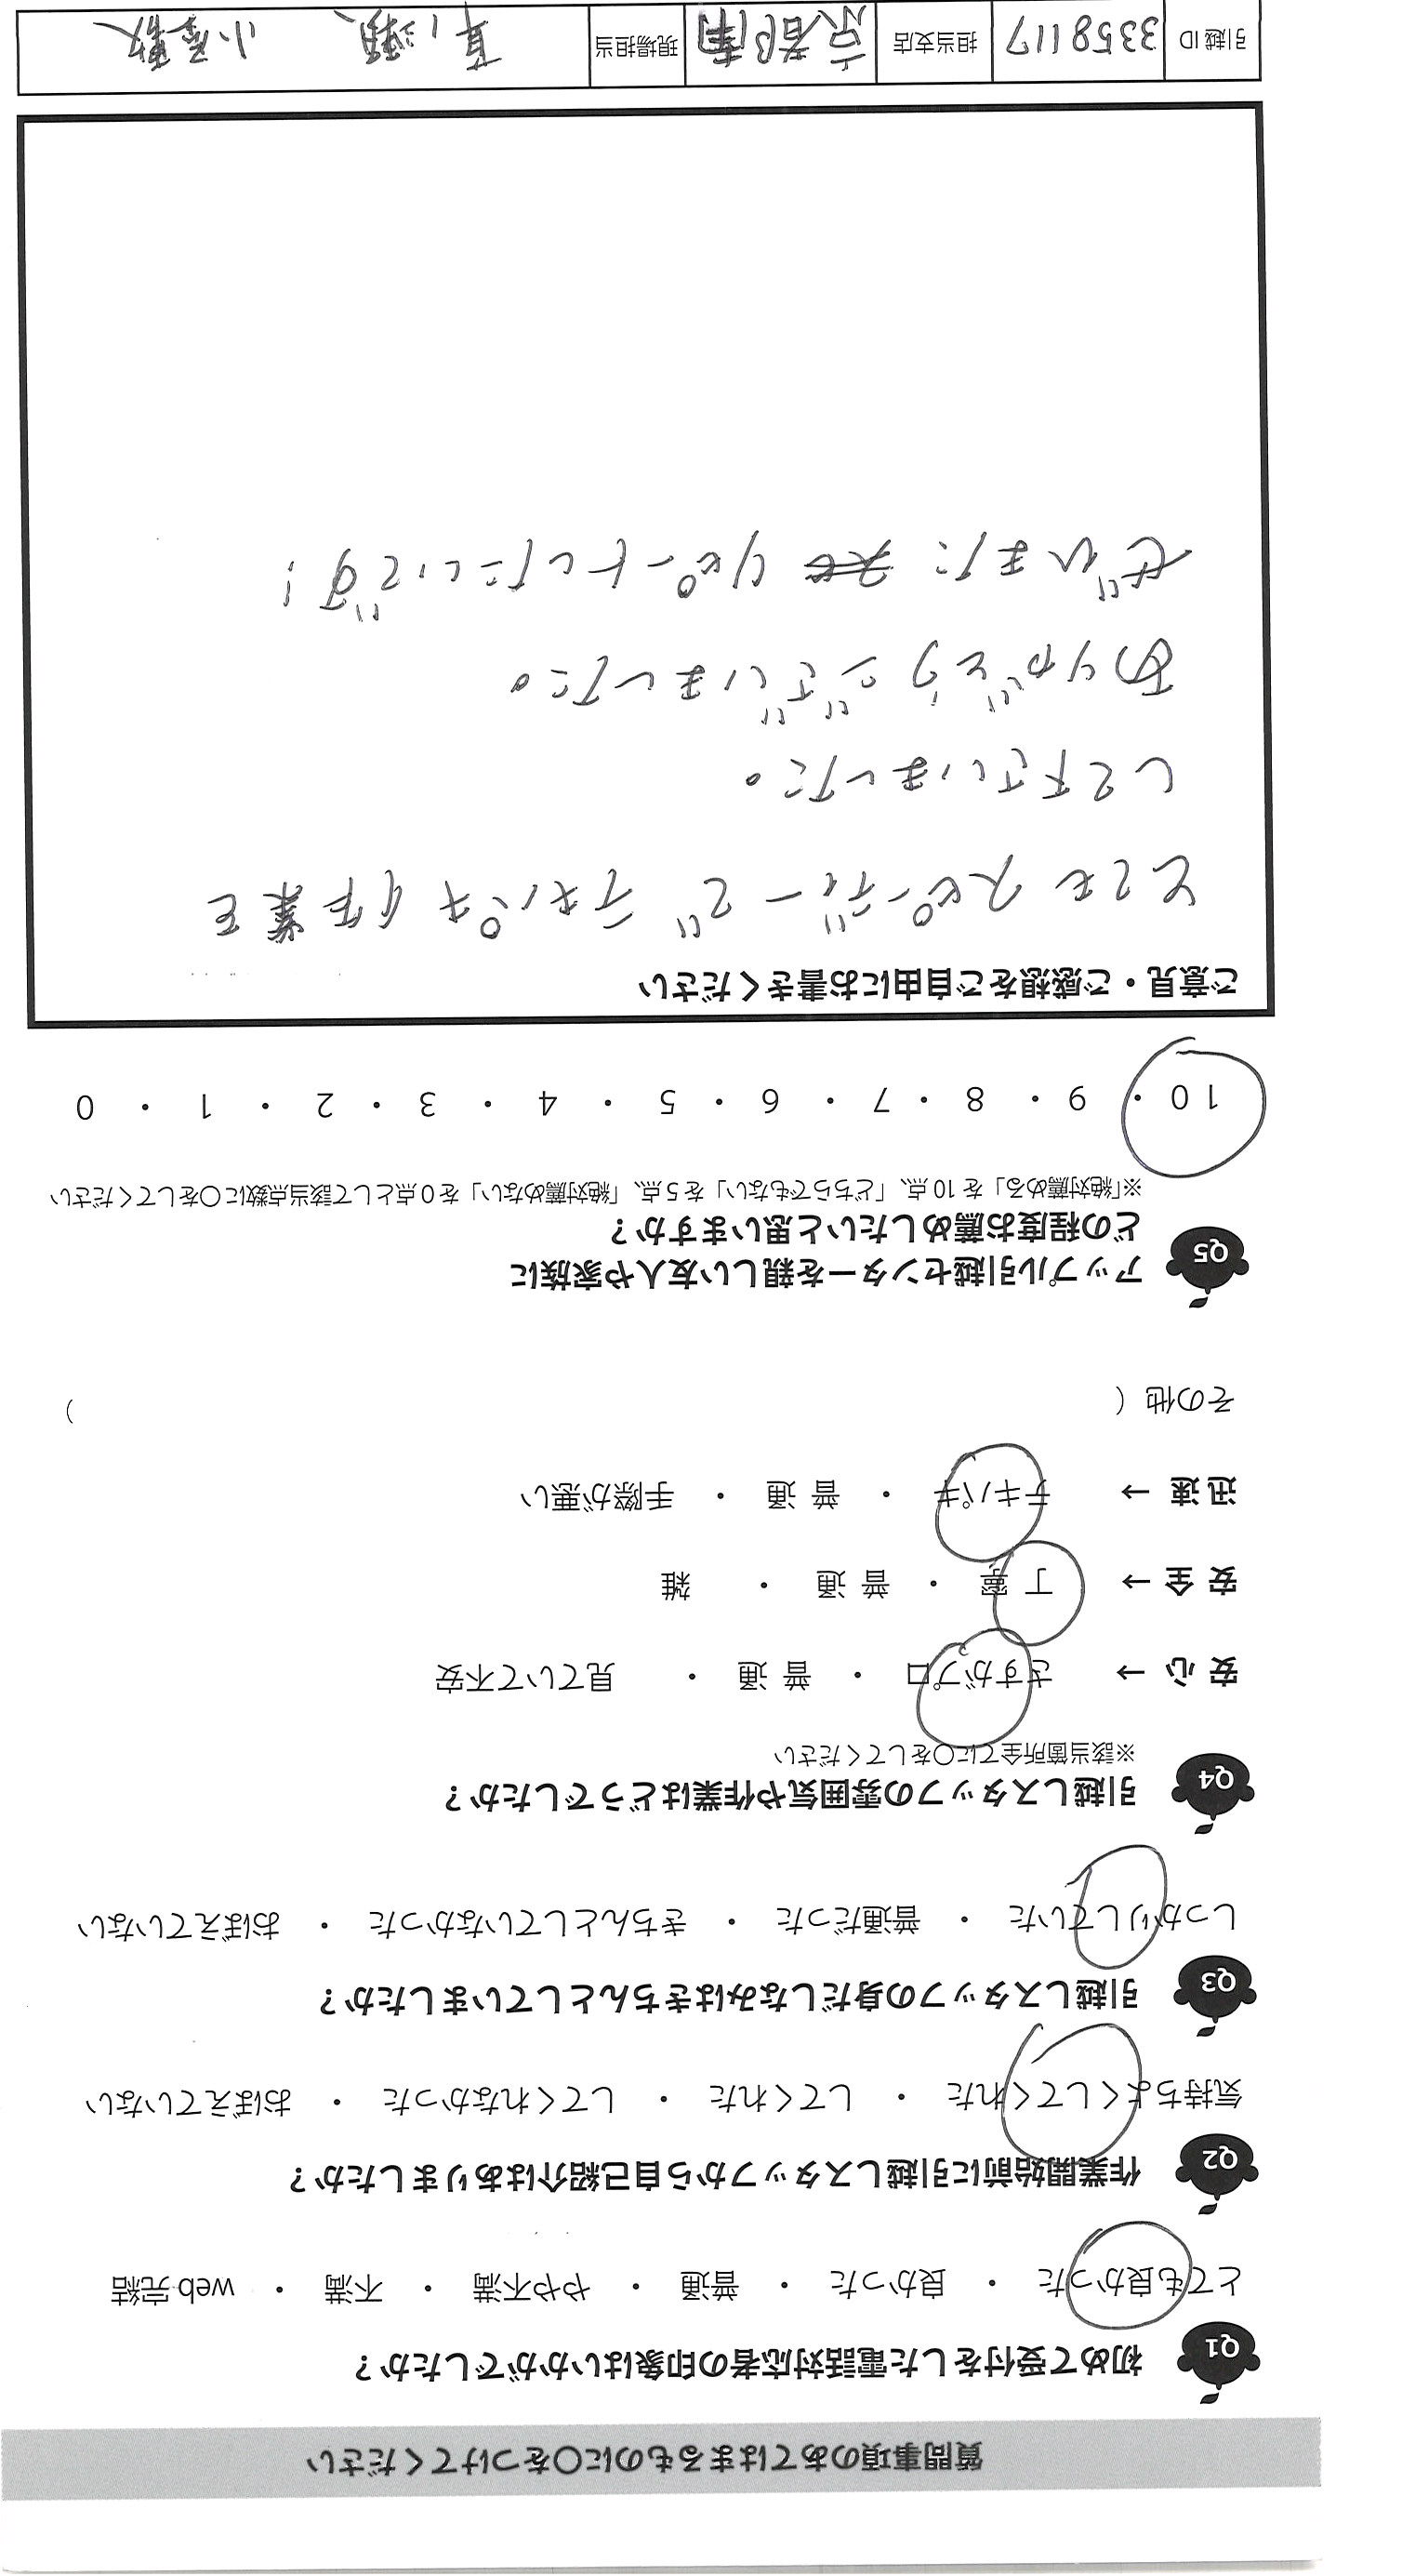 質問事項のあてはまるものに〇をつけてください
Q1 初めて受付をした電話対応者の印象はいかがでしたか？
とても良かった ・ 良かった ・ 普通 ・ やや不満 ・ 不満 ・ web完結
Q2 作業開始前に引越しスタッフから自己紹介はありましたか？
気持ちよくしてくれた ・ してくれた ・ してくれなかった ・ おぼえていない
Q3 引越しスタッフの身だしなみはきちんとしていましたか？
しっかりしていた ・ 普通だった ・ きちんとしていなかった ・ おぼえていない
Q4 引越しスタッフの雰囲気や作業はどうでしたか？
※該当箇所全てに〇をしてください
安心 → さすがプロ ・ 普通 ・ 見ていて不安
安全 → 丁寧 ・ 普通 ・ 雑
迅速 → テキパキ ・ 普通 ・ 手際が悪い
その他（ ）
Q5 アップル引越センターを親しい友人や家族に
どの程度お薦めしたいと思いますか？
※「絶対薦める」を10点、「どちらでもない」を5点、「絶対薦めない」を0点として該当点数に〇をしてください
10 ・ 9 ・ 8 ・ 7 ・ 6 ・ 5 ・ 4 ・ 3 ・ 2 ・ 1 ・ 0
ご意見・ご感想をご自由にお書きください
とてもスピーディーで テキパキ作業を
して下さいました。
ありがとうございました。
ぜひまた リピートしたいです！
引越ID 3358117 担当支店 京都南 現場担当